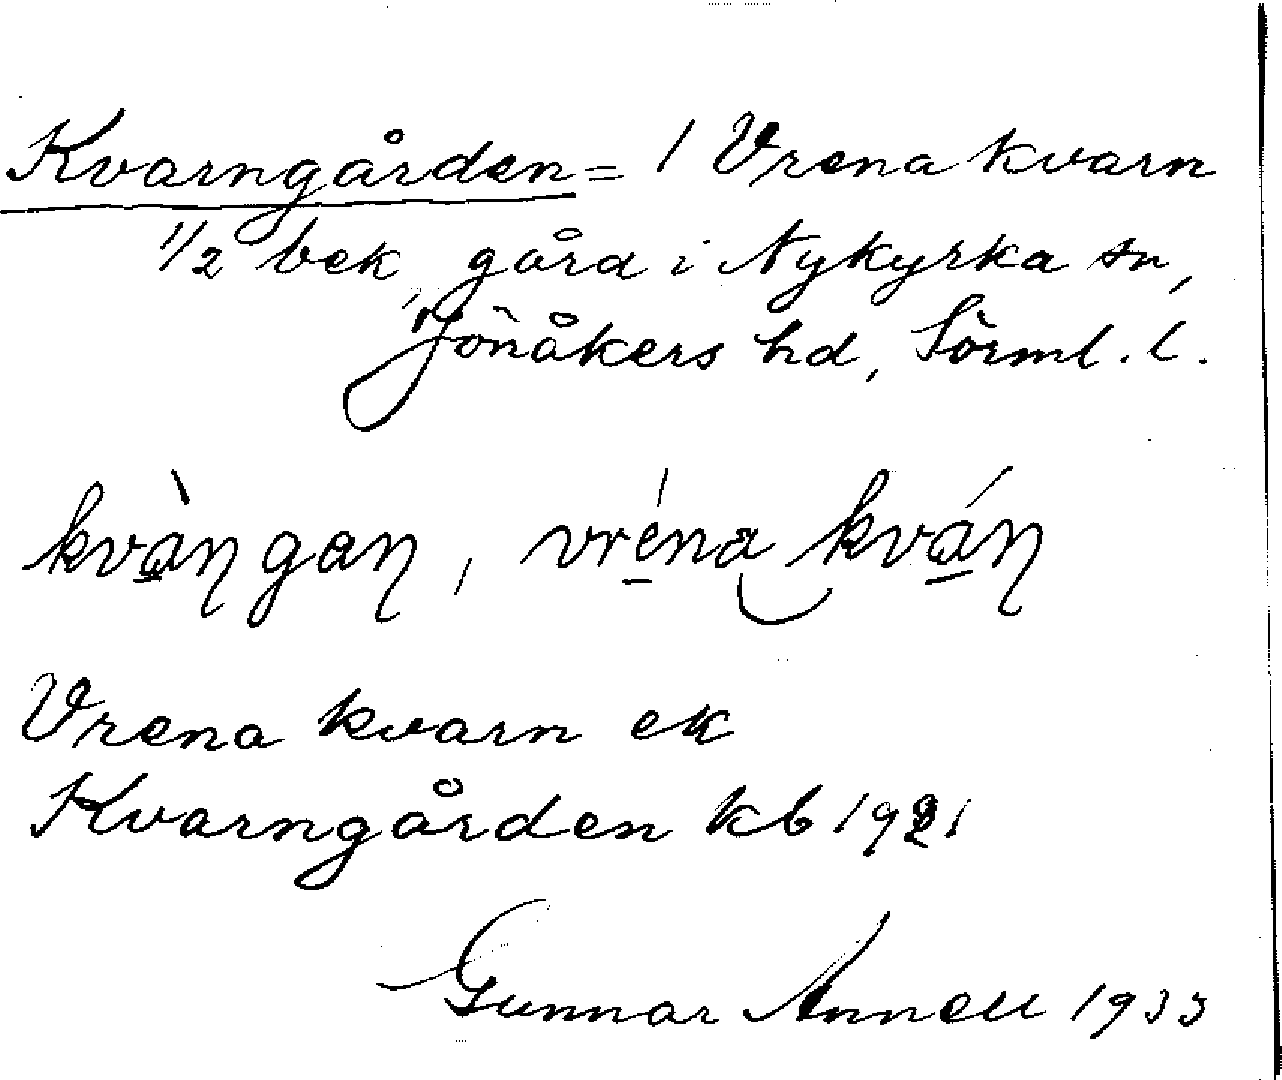 Kvarngården = 1 Vrena kvarn
1/2 bek, gård i Nykyrka sn,
Jönåkers hd, Sörml. l.
kvàŋgaŋ, vréna kváŋ
Vrena kvarn ek
Kvarngården kb 1921
Gunnar Annell 1933